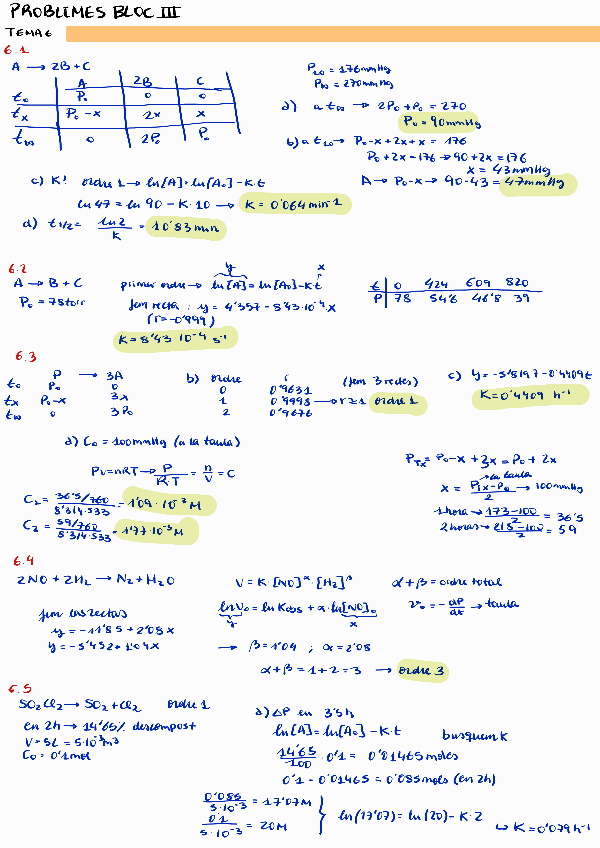 PROBLEMES BLOC III
TEMA 6
6.1
A → 2B + C
A 2B C
t₀ P₀ 0 0
tx P₀-x 2x x
t∞ 0 2P₀ P₀
P₁₀ = 176mmHg
P∞ = 270mmHg
a) a t∞ → 2P₀ + P₀ = 270
P₀ = 90mmHg
b) a t₁₀ → P₀-x+2x+x = 176
P₀+2x=176 → 90+2x=176
x = 43mmHg
A → P₀-x → 90-43 = 47mmHg
c) K? ordre 1 → ln[A]=ln[A₀]-K·t
ln 47 = ln 90 - K·10 → K = 0'064 min⁻¹
d) t1/2 = ln2/K = 10'83 min
6.2
A → B + C
P₀ = 78torr
primer ordre → ln[A] = ln[A₀]-K·t
y x
fem recta : y = 4'357 - 8'43·10⁻⁴x
(r=-0'999)
K = 8'43·10⁻⁴ s⁻¹
t 0 424 609 820
P 78 54'6 46'8 39
6.3
P → 3A
t₀ P₀ 0
tx P₀-x 3x
t∞ 0 3P₀
b) ordre r (fem 3 rectes)
0 0'9631
1 0'9998 → r≈1 ordre 1
2 0'9676
c) y = -5'8197-0'4409t
K = 0'4409 h⁻¹
d) C₀ = 100mmHg (a la taula)
PV=nRT → P/RT = n/V = C
C₁ = 36'5/760 / 8'314·533 = 1'09·10⁻³ M
C₂ = 59/760 / 8'314·533 = 1'77·10⁻³ M
PTx = P₀-x+3x = P₀+2x
la taula
x = PTx-P₀/2 → 100mmHg
1 hora → 173-100/2 = 36'5
2 hores → 218-100/2 = 59
6.4
2NO + 2H₂ → N₂ + H₂O
V = K·[NO]^α·[H₂]^β
α + β = ordre total
fem les rectas
y = -11'85 + 2'08x
y = -5'452 + 1'04x
ln V₀ = ln Kobs + α·ln[NO]₀
y x
v₀ = - dP/dt → taula
→ β = 1'04 ; α = 2'08
α + β = 1 + 2 = 3 → ordre 3
6.5
SO₂Cl₂ → SO₂ + Cl₂ ordre 1
en 2h → 14'65% descompost
V = 5L = 5·10⁻³m³
C₀ = 0'1mol
a) ΔP en 3'5h
ln[A] = ln[A₀] - K·t
busquem K
14'65/100 · 0'1 = 0'01465 moles
0'1 - 0'01465 = 0'085 mols (en 2h)
0'085/5·10⁻³ = 17'07M
0'1/5·10⁻³ = 20M
ln(17'07) = ln(20) - K·2
↳ K = 0'079 h⁻¹